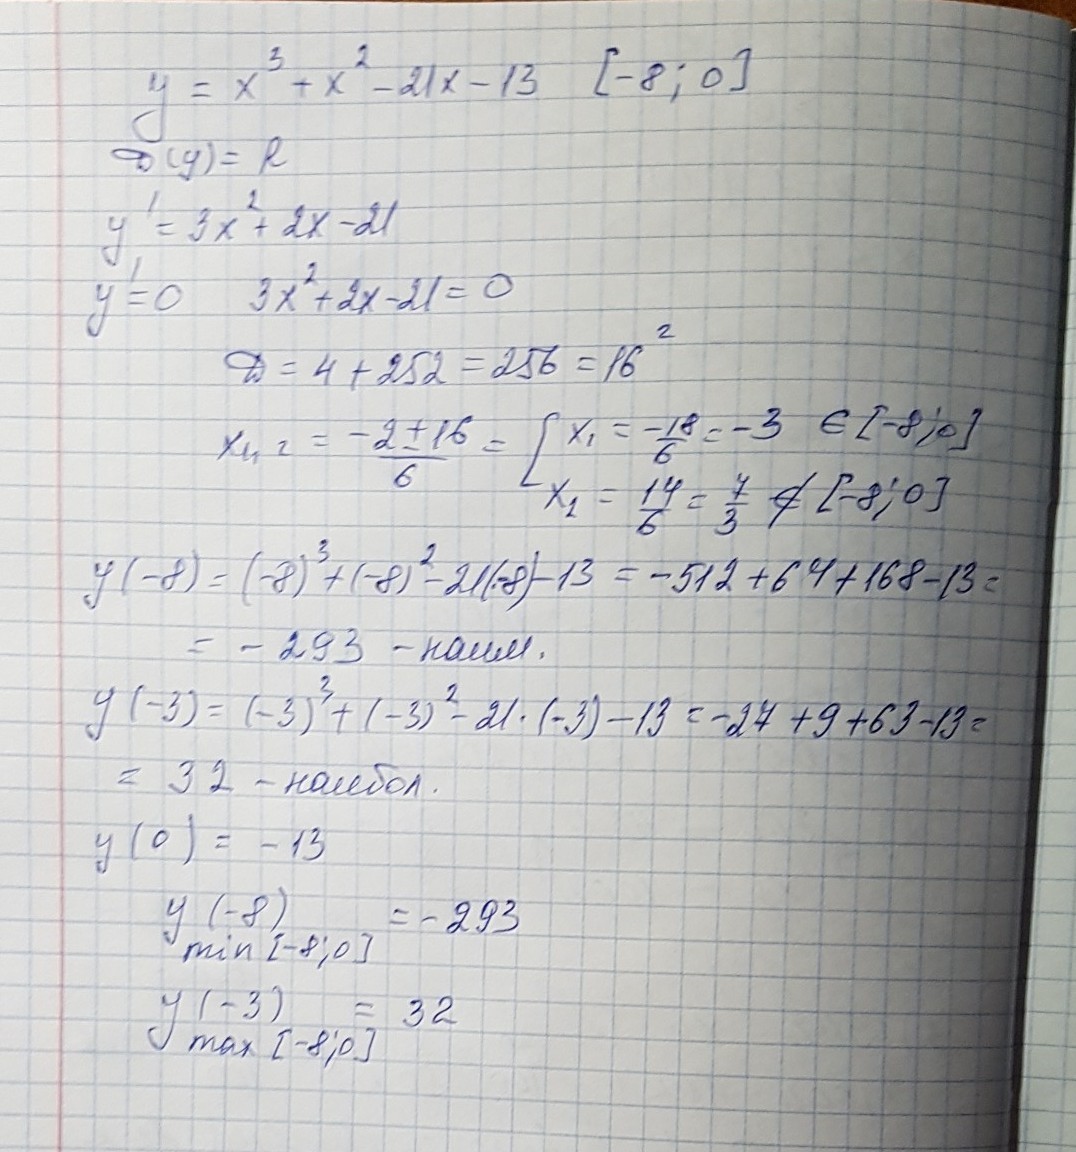 y = x³ + x² - 21x - 13 [-8; 0]
D(y) = R
y' = 3x² + 2x - 21
y' = 0 3x² + 2x - 21 = 0
D = 4 + 252 = 256 = 16²
x₁,₂ = (-2 ± 16)/6 = [ x₁ = -18/6 = -3 ∈ [-8; 0]
x₂ = 14/6 = 7/3 ∉ [-8; 0]
y(-8) = (-8)³ + (-8)² - 21(-8) - 13 = -512 + 64 + 168 - 13 =
= -293 - наим.
y(-3) = (-3)³ + (-3)² - 21·(-3) - 13 = -27 + 9 + 63 - 13 =
= 32 - наибол.
y(0) = -13
y(-8) = -293
min [-8; 0]
y(-3) = 32
max [-8; 0]